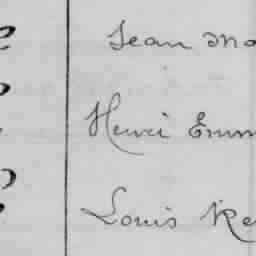 Jean Ma
Henri Emm
Louis Re